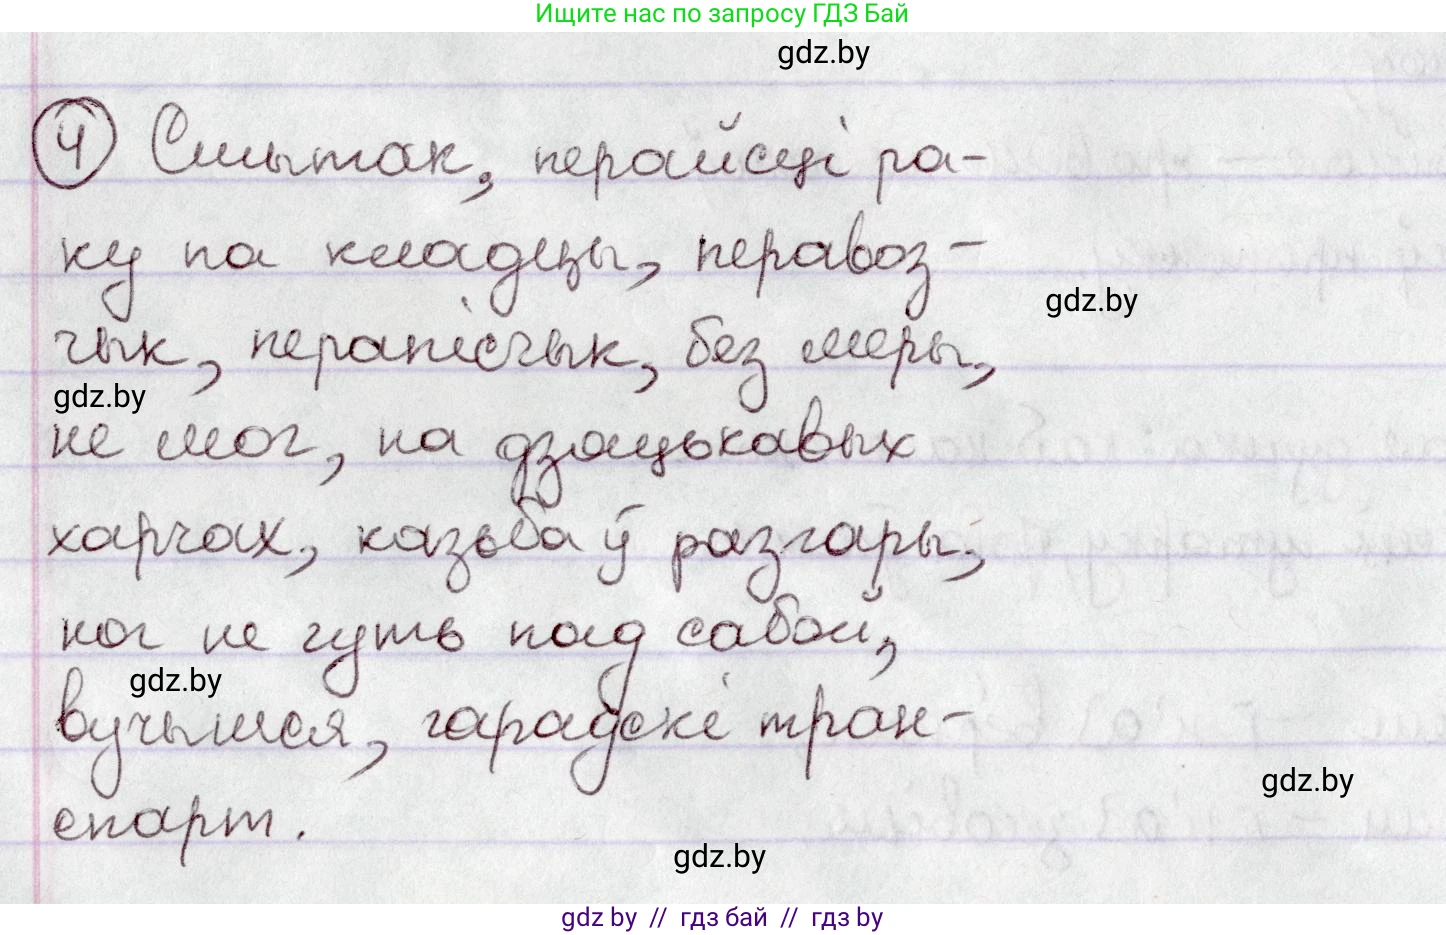 Ищите нас по запросу ГДЗ Бай
gdz.by
4 Смытак, перайсці ра-
ку па кладцы, перавоз-
gdz.by
чык, перапісчык, без меры,
gdz.by
не мог, на дзяцькавых
харчах, казьба ў разгары,
ног не чуць пад сабой,
gdz.by
вучышся, гарадскі тран-
gdz.by
спарт.
gdz.by
gdz by // гдз бай // гдз by